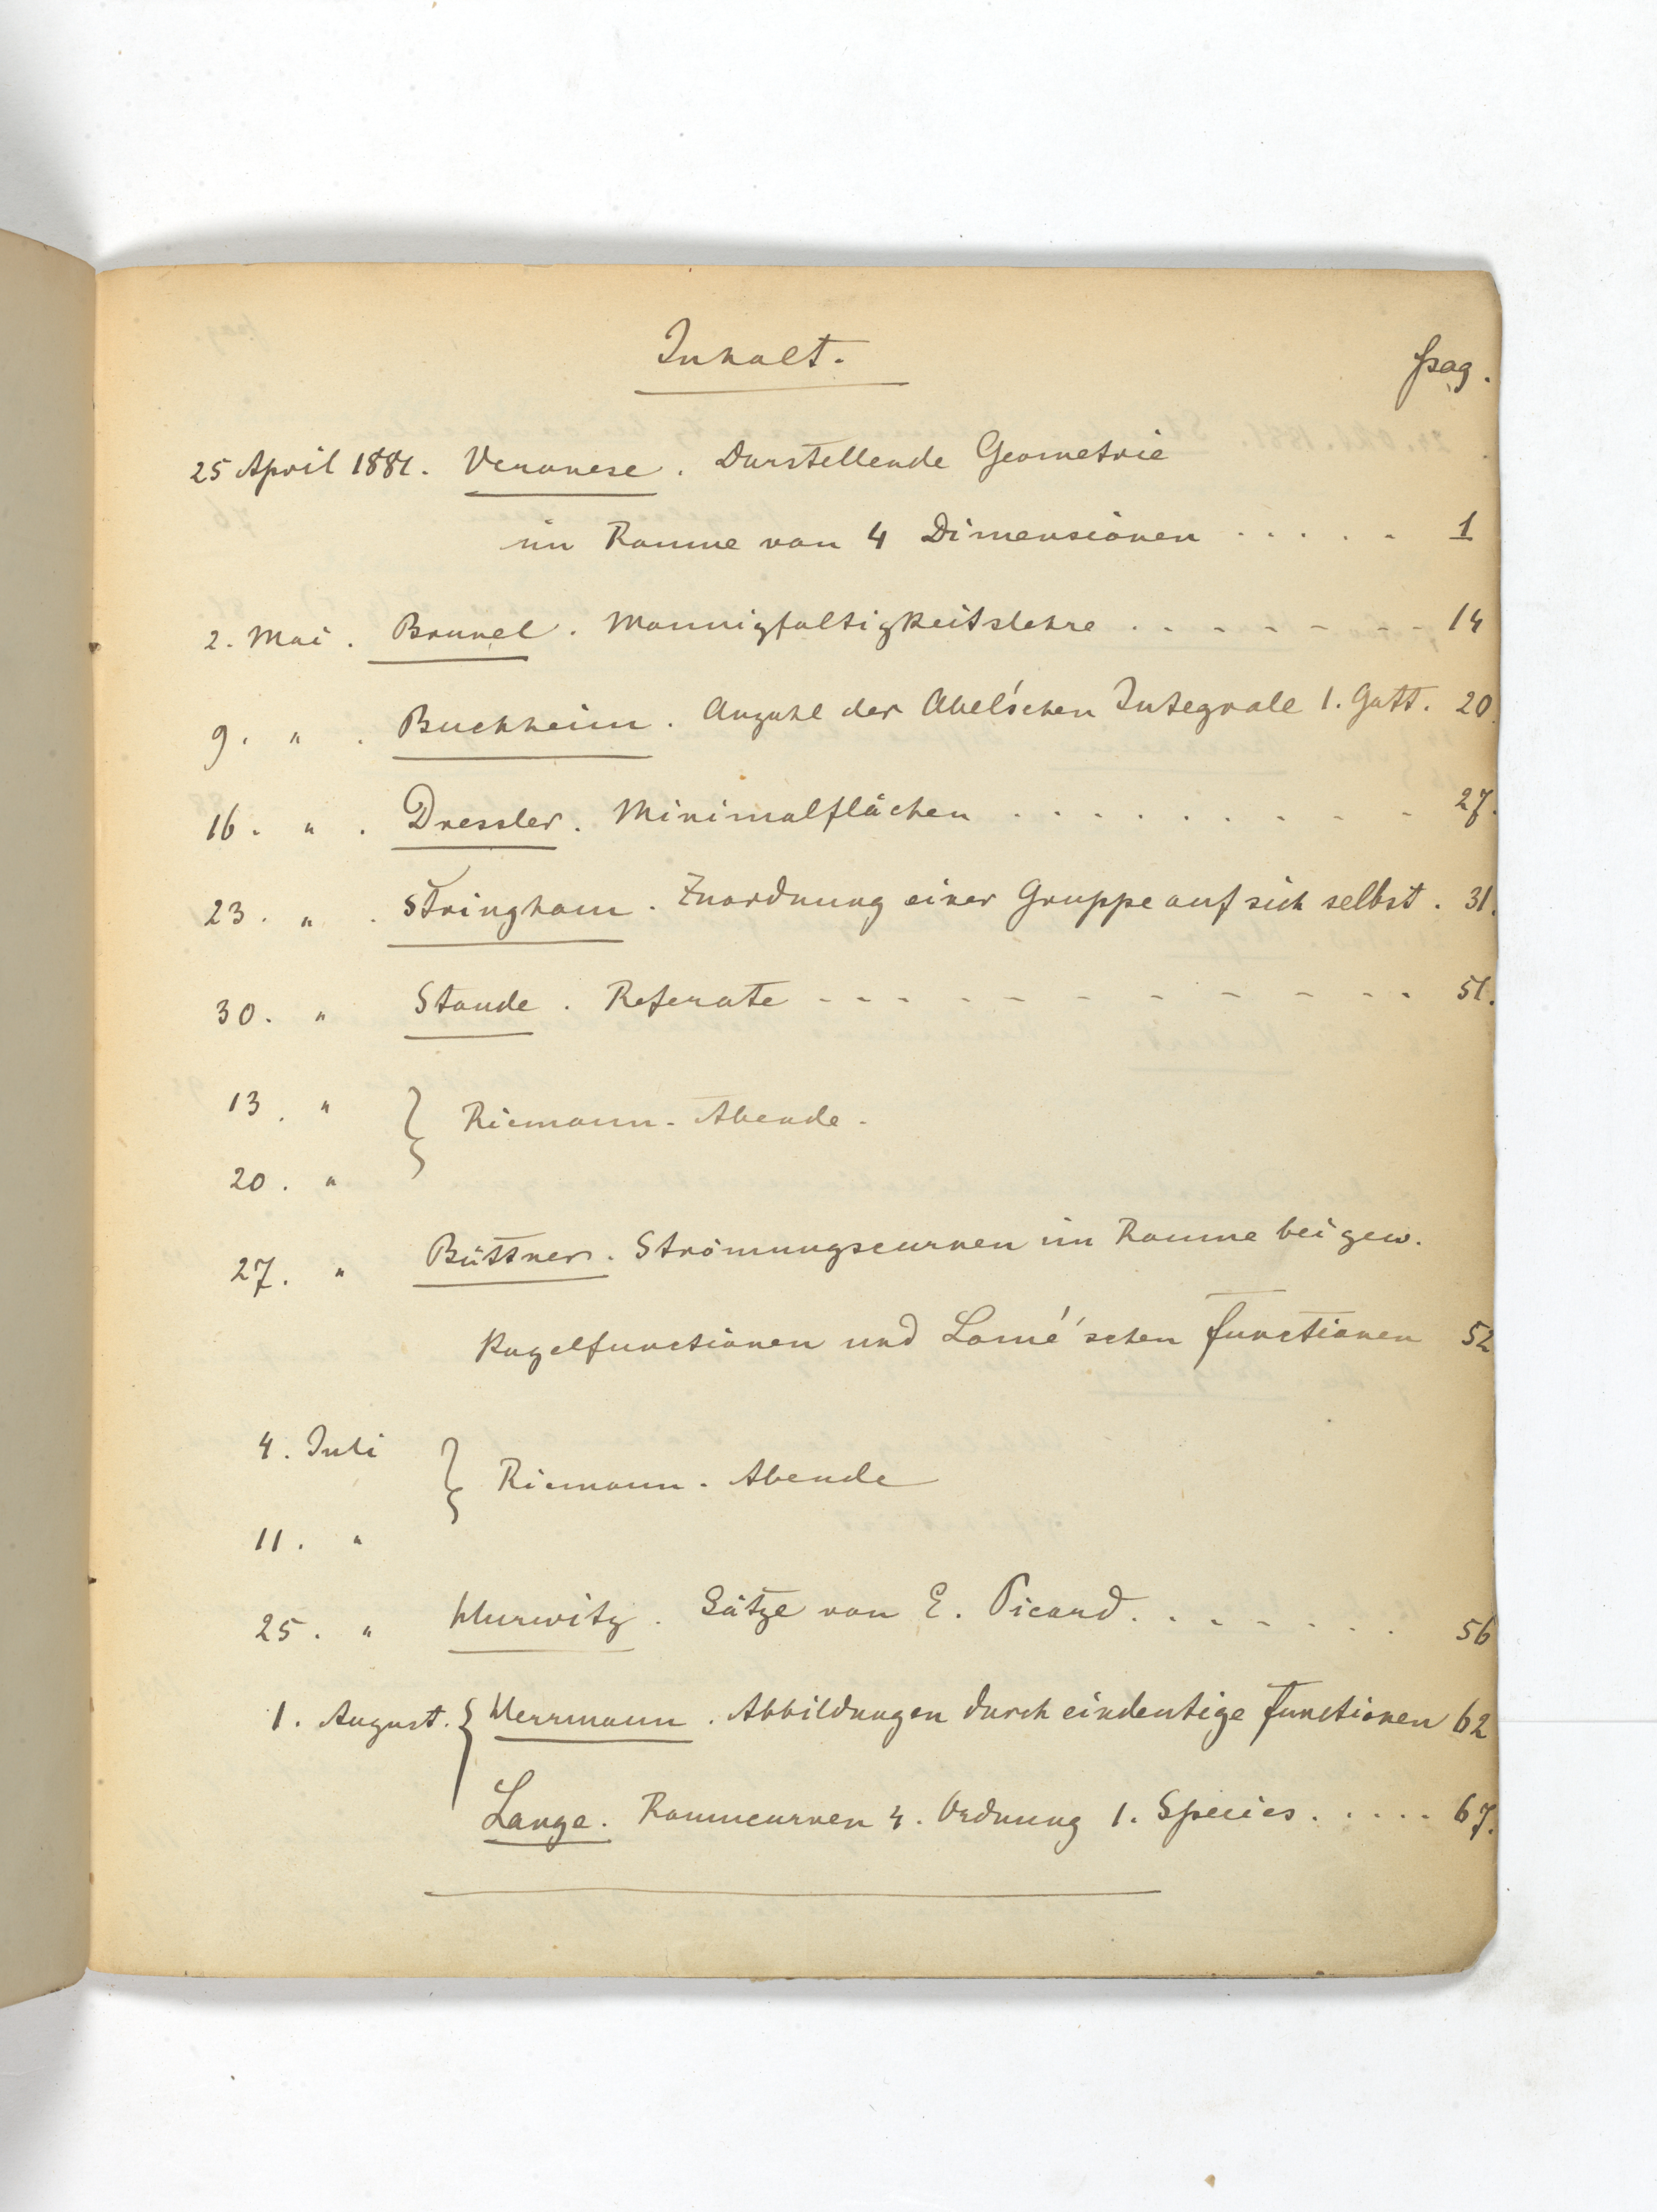 Inhalt.
pag.
25 April 1881. Veronese. Darstellende Geometrie
im Raume von 4 Dimensionen . . . . . 1
2. Mai. Brunel. Mannigfaltigkeitslehre . . . . . . . 14
9. " . Buchheim. Anzahl der Abel'schen Integrale 1. Gatt. 20
16. " . Dressler. Minimalflächen . . . . . . . . . 27.
23. " . Stringham. Zuordnung einer Gruppe auf sich selbst. 31.
30. " Staude. Referate - - - - - - - - - - - 51.
13. "
Riemann-Abende.
20. "
27. " Büttner. Strömungscurven im Raume bei gew.
Kugelfunctionen und Lamé'schen Functionen 52
4. Juli
Riemann-Abende
11. "
25. " Hurwitz. Sätze von E. Picard. . . . . . . 56
1. August. Herrmann. Abbildungen durch eindeutige Functionen 62
Lange. Raumcurven 4. Ordnung 1. Species. . . . . 67.